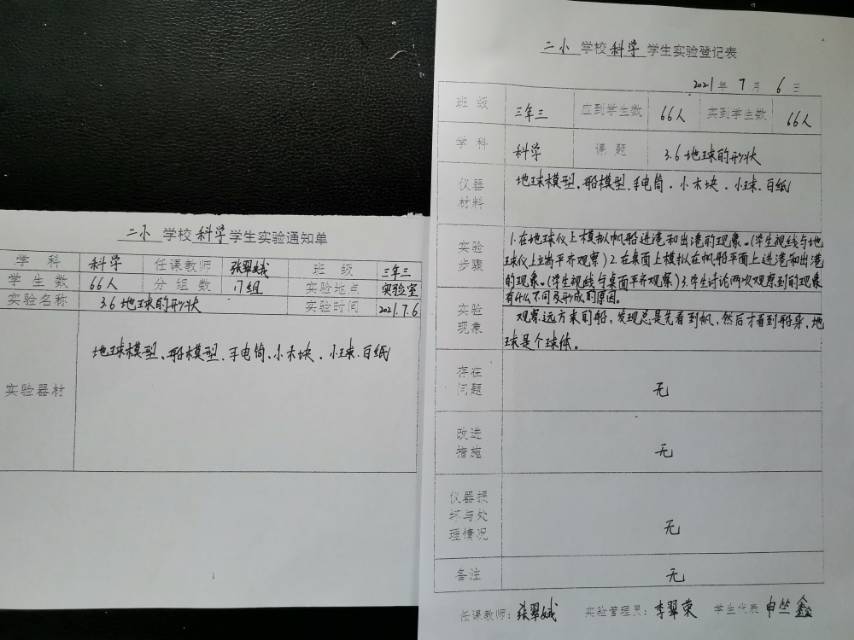 二小 学校 科学 学生实验通知单
学科 科学 任课教师 张翠娥 班级 三年三
学生数 66人 分组数 17组 实验地点 实验室
实验名称 3.6 地球的形状 实验时间 2021.7.6
实验器材 地球模型、船模型、手电筒、小木块、小球、白纸
二小 学校 科学 学生实验登记表
2021年 7月 6日
班级 三年三 应到学生数 66人 实到学生数 66人
学科 科学 课题 3.6 地球的形状
仪器材料 地球模型、船模型、手电筒、小木块、小球、白纸
实验步骤
1.在地球仪上模拟帆船进港和出港的现象。(学生视线与地
球仪上端平齐观察)2.在桌面上模拟在帆船平面上进港和出港
的现象。(学生视线与桌面平齐观察)3.学生讨论两次观察到的现象
有什么不同及形成的原因。
实验现象
观察远方来的船,发现总是先看到帆,然后才看到船身,地
球是个球体。
存在问题 无
改进措施 无
仪器损坏与处理情况 无
备注 无
任课教师:张翠娥 实验管理员:李翠荣 学生代表 申竺鑫